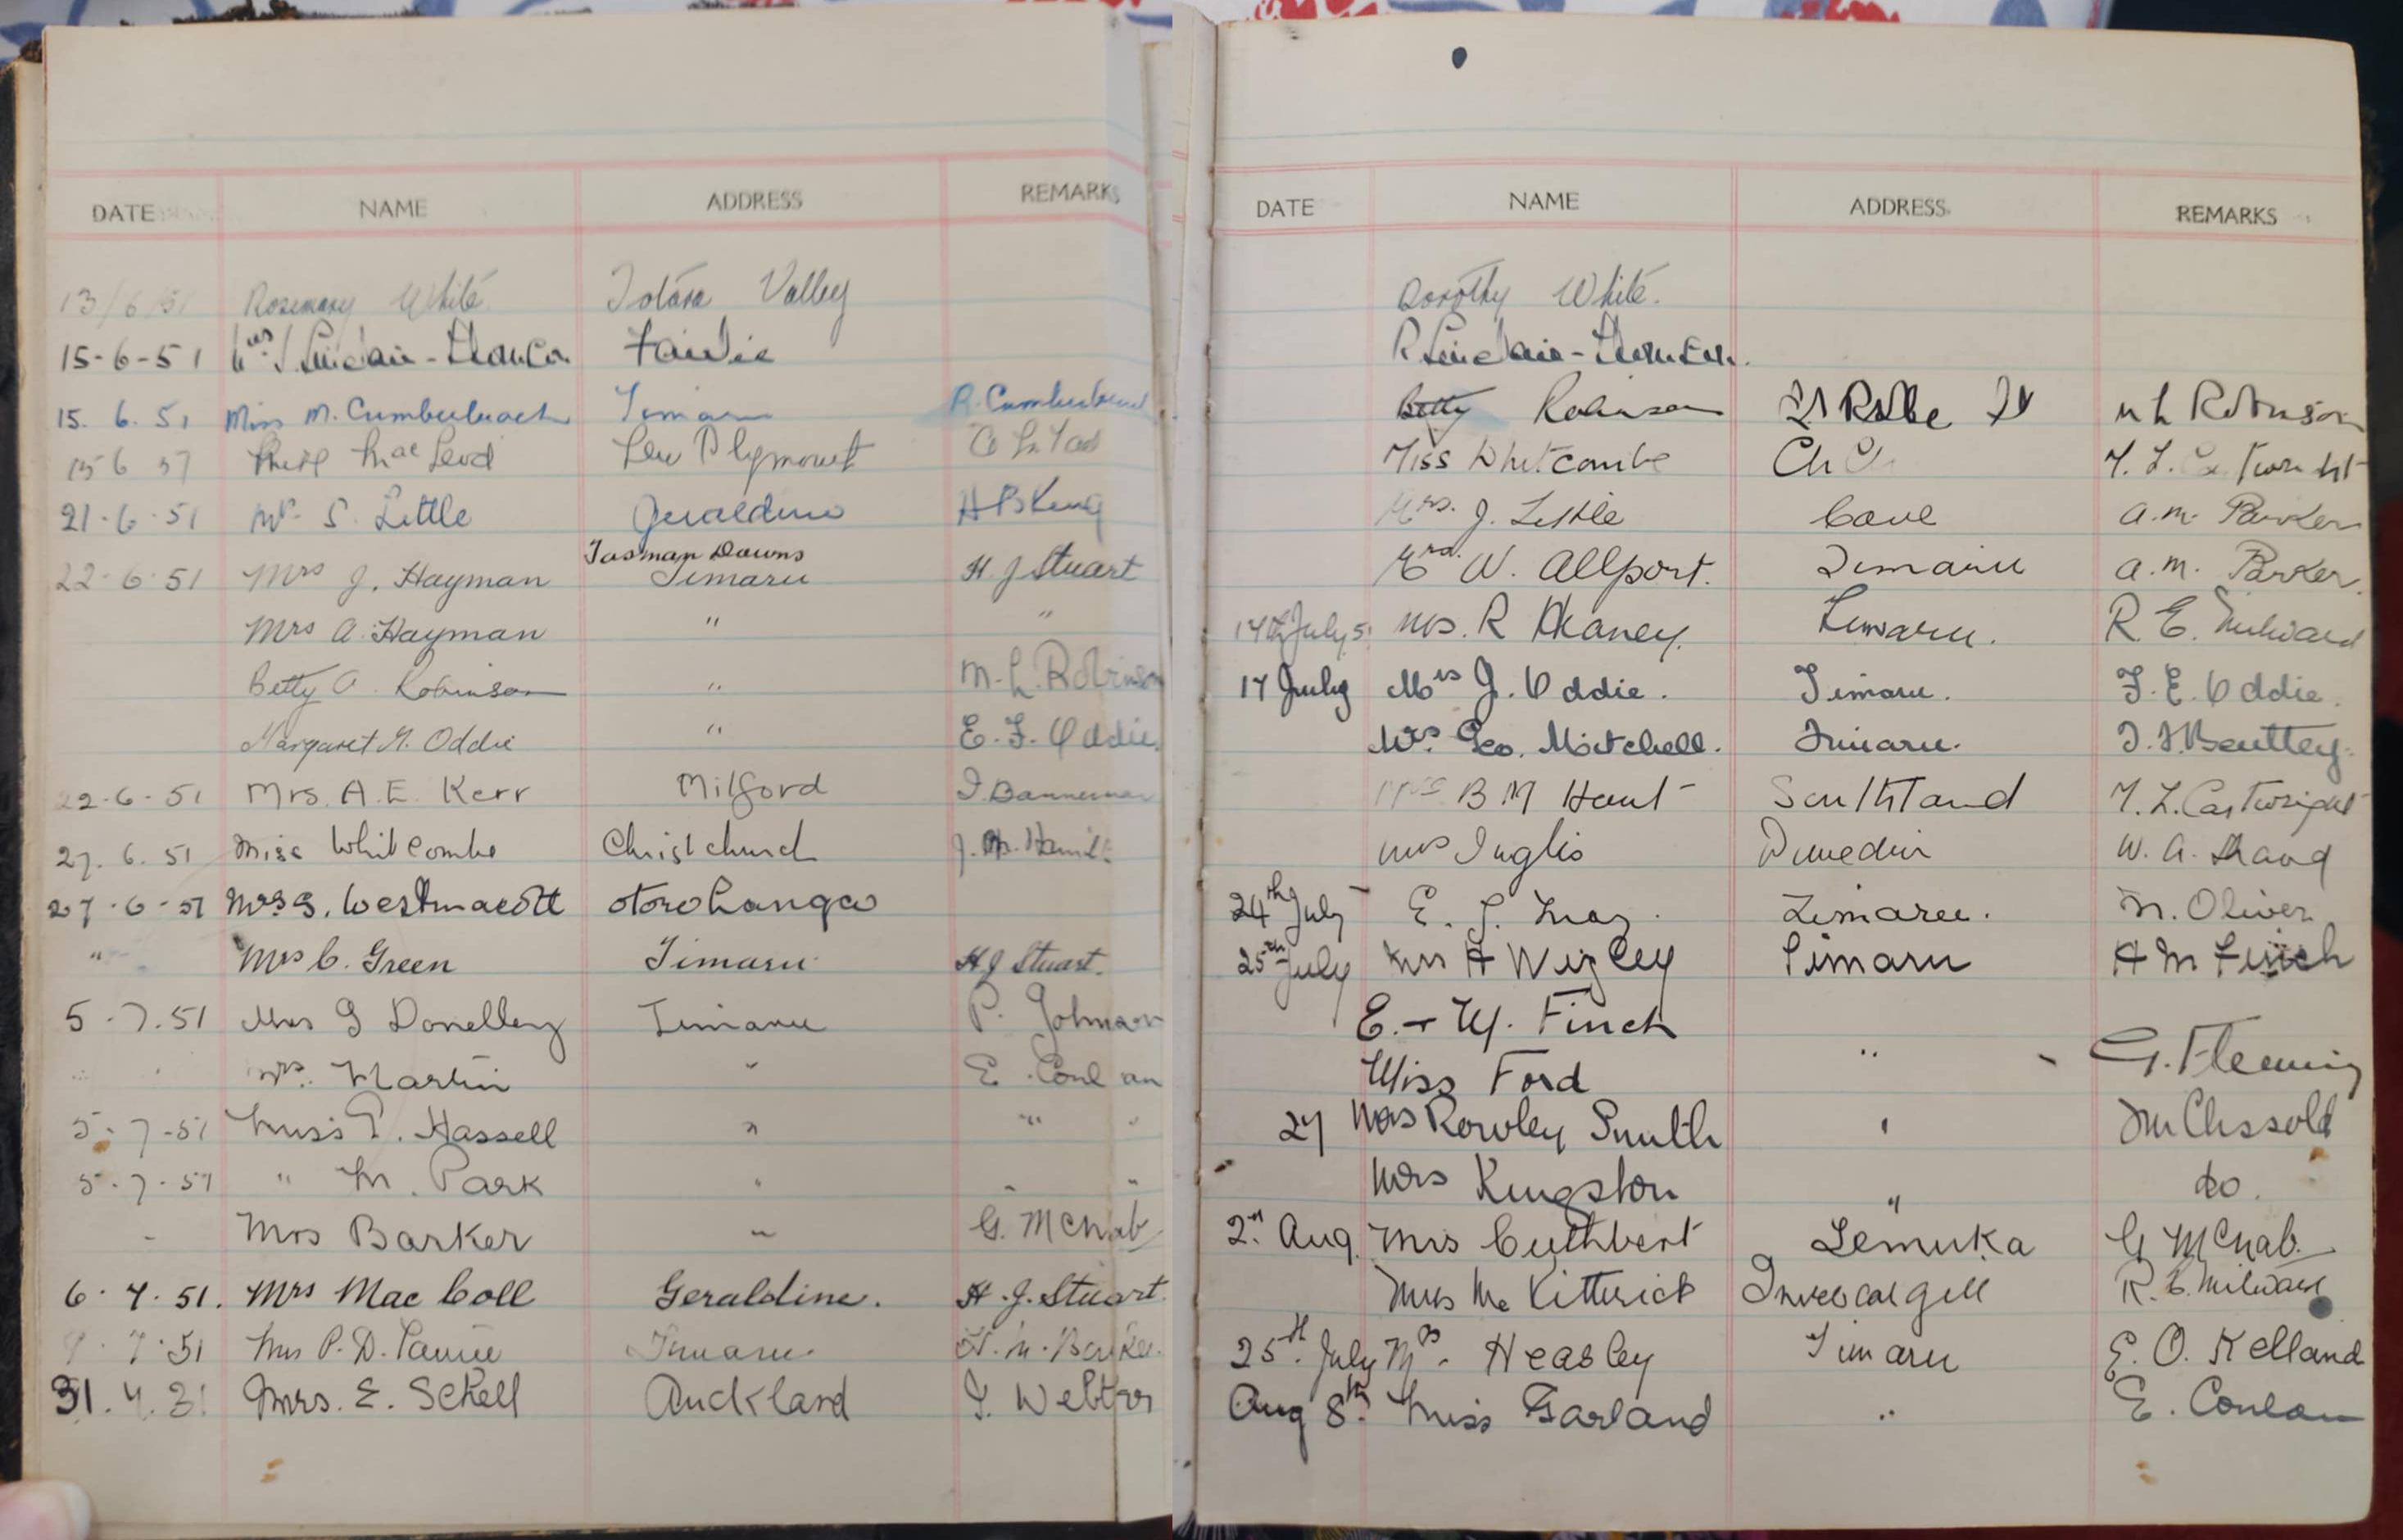 DATE NAME ADDRESS REMARKS
13/6/51 Rosemary White Totara Valley
15-6-51 Mrs J. Sinclair-Thomson Fairlie
15. 6. 51 Miss M. Cumberbeach Timaru R. Cumberbeach
15 6 51 MacLeod New Plymouth
21-6-51 Mr S. Little Geraldine H B King
Tasman Downs
22-6-51 Mrs J. Hayman Timaru H J Stuart
Mrs A. Hayman " "
Betty A. Robinson " M. L. Robinson
Margaret G. Oddie " E. F. Oddie.
22-6-51 Mrs. A. E. Kerr Milford I Bannerman
27. 6. 51 Miss Whitcombe Christchurch J. M. Hamilt
27-6-51 Mrs G. Westmacott Otorohanga
" Mrs C. Green Timaru H J Stuart.
5-7.51 Mrs G Donelley Timaru P. Johnson
Mrs. Martin " E. Conlan
5-7-51 Miss P. Hassell " " "
5-7-51 " M. Park " " "
- Mrs Barker " G. McNab
6. 7. 51. Mrs Mac Coll Geraldine. H. J. Stuart.
9. 7. 51 Mrs P. D. Timaru.
31. Mrs. E. Schell Auckland
DATE NAME ADDRESS REMARKS
Dorothy White.
R Sinclair-Thomson.
Betty Robinson 21 St M L Robinson
Miss Whitcombe ChCh Y. L. Cartwright
Mrs. J. Little Cave A. M. Parker
Mrs. W. Allport. Timaru A. M. Parker.
14th July 51 Mrs. R Heaney. Timaru. R. E. Milward
17 July Mrs J. Oddie. Timaru. F. E. Oddie.
Mrs. Geo. Mitchell. Timaru. Bentley.
Mrs B M Hunt Southland Y. L. Cartwright
Mrs Inglis Dunedin W. A. Shand
24th July E. J. Timaru. N. Oliver
25th July Mrs A Wigley Timaru A M Finch
E. + W. Finch
Miss Ford " G. Fleming
27 Mrs Rowley Smith " M Clissold
Mrs Kingston " do.
2nd Aug. Mrs Cuthbert Temuka G McNab.
Mrs Mc Kitterick Invercargill R. E. Milward
25th July Mrs. Heasley Timaru E. O. Kelland
Aug 8th. Miss Garland " E. Conlan